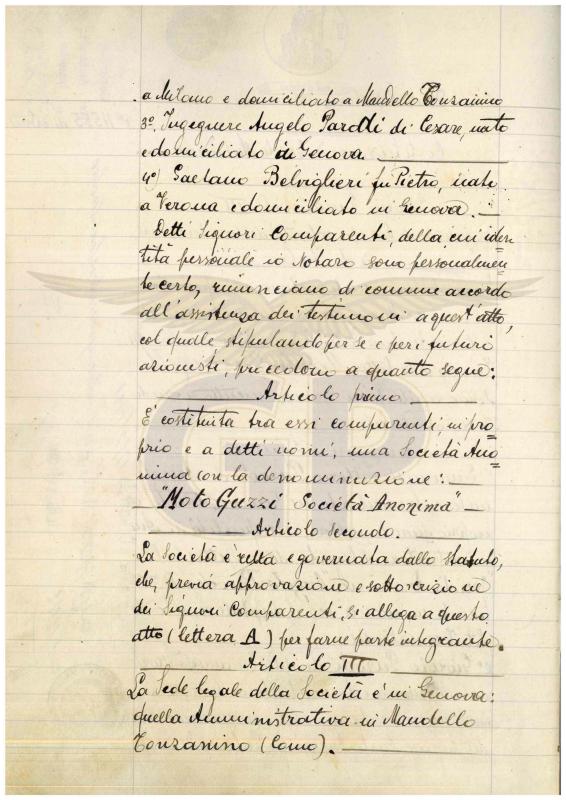 a Milano e domiciliato a Mandello Tonzanino
3º. Ingegnere Angelo Parodi di Cesare, nato
e domiciliato in Genova.
4º) Gaetano Belviglieri fu Pietro, nato
a Verona e domiciliato in Genova.
Detti Signori Comparenti, della cui iden=
tità personale io Notaro sono personalmen=
te certo, rinunciano di comune accordo
all'assistenza dei testimoni a quest'atto,
col quale stipulando per se e per i futuri
azionisti, procedono a quanto segue:
Articolo primo
E' costituita tra essi comparenti, in pro=
prio e a detti nomi, una Società Ano=
nima con la denominazione:
"Moto Guzzi Società Anonima"
Articolo secondo.
La Società è retta e governata dallo statuto,
che, previa approvazione e sottoscrizione
dei Signori Comparenti, si allega a questo
atto (lettera A) per farne parte integrante.
Articolo III
La Sede legale della Società è in Genova:
quella Amministrativa in Mandello
Tonzanino (Como).